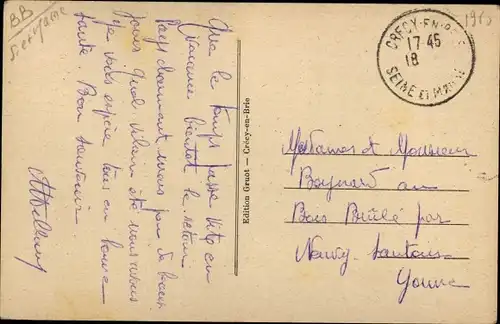 BB
Seine et Marne
1915
Que le temps passe vite en
vacances bientôt le retour
Pays charmant mais peu de beaux
jours quel vilain été nous avons
Je vous espère tous en bonne
santé. Bon souvenir
Edition Gruot — Crécy-en-Brie
CRECY-EN-BRIE
17-45
18
SEINE ET MARNE
Mesdames et Monsieur
Boynard au
Bois Brûlé par
Neuvy-Sautour
Yonne